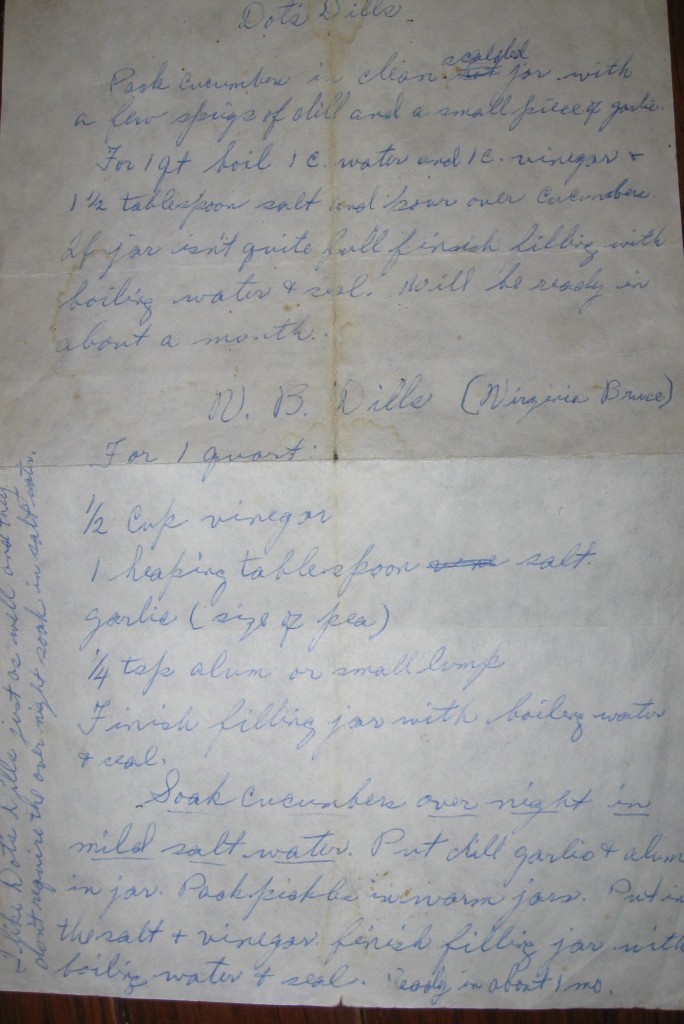 Dot's Dills
Pack cucumbers in clean scalded jar with
a few spigs of dill and a small piece of garlic.
For 1 qt boil 1 c. water and 1 c. vinegar +
1 1/2 tablespoon salt and pour over cucumbers.
If jar isn't quite full finsish filling with
boiling water & seal. Will be ready in
about a month.
V. B. Dills (Virginia Bruce)
For 1 quart:
1/2 cup vinegar
1 heaping tablespoon salt.
garlic (size of pea)
1/4 tsp alum or small lump
Finish filling jar with boiling water
& seal.
Soak cucumbers over night in
mild salt water. Put dill garlic & alum
in jar. Pack pickles in warm jars. Put in
the salt & vinegar finish filling jar with
boiling water & seal. Ready in about 1 mo.
I like Dots Dills just as well and they
don't require the over night soak in salt water.